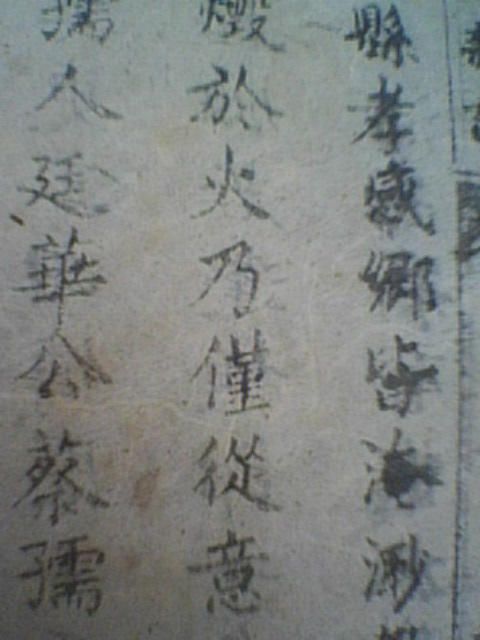 縣孝感鄉皆淹
燬於火乃僅從意
孺人廷華公蔡孺